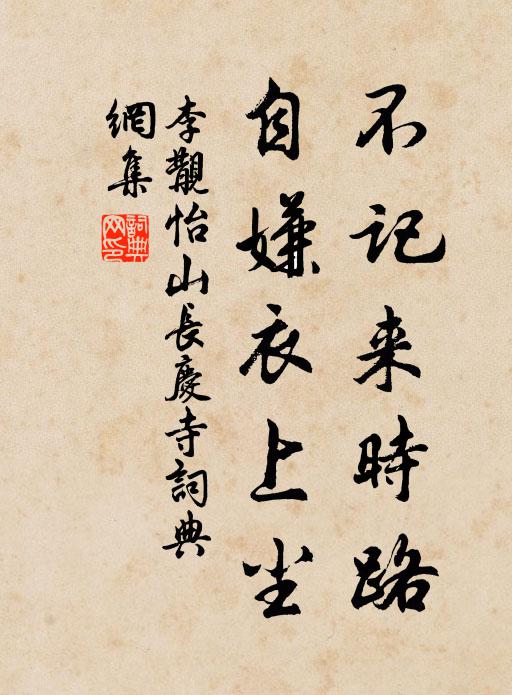 不記来時路
自嫌衣上尘
李觀怡山長慶寺詞典
網集
詞典網印